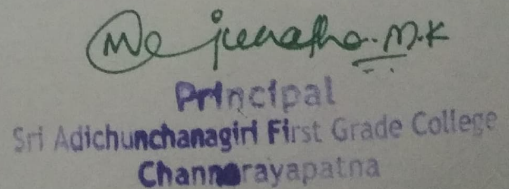 Manjunatha.M.K
Principal
Sri Adichunchanagiri First Grade College
Channarayapatna